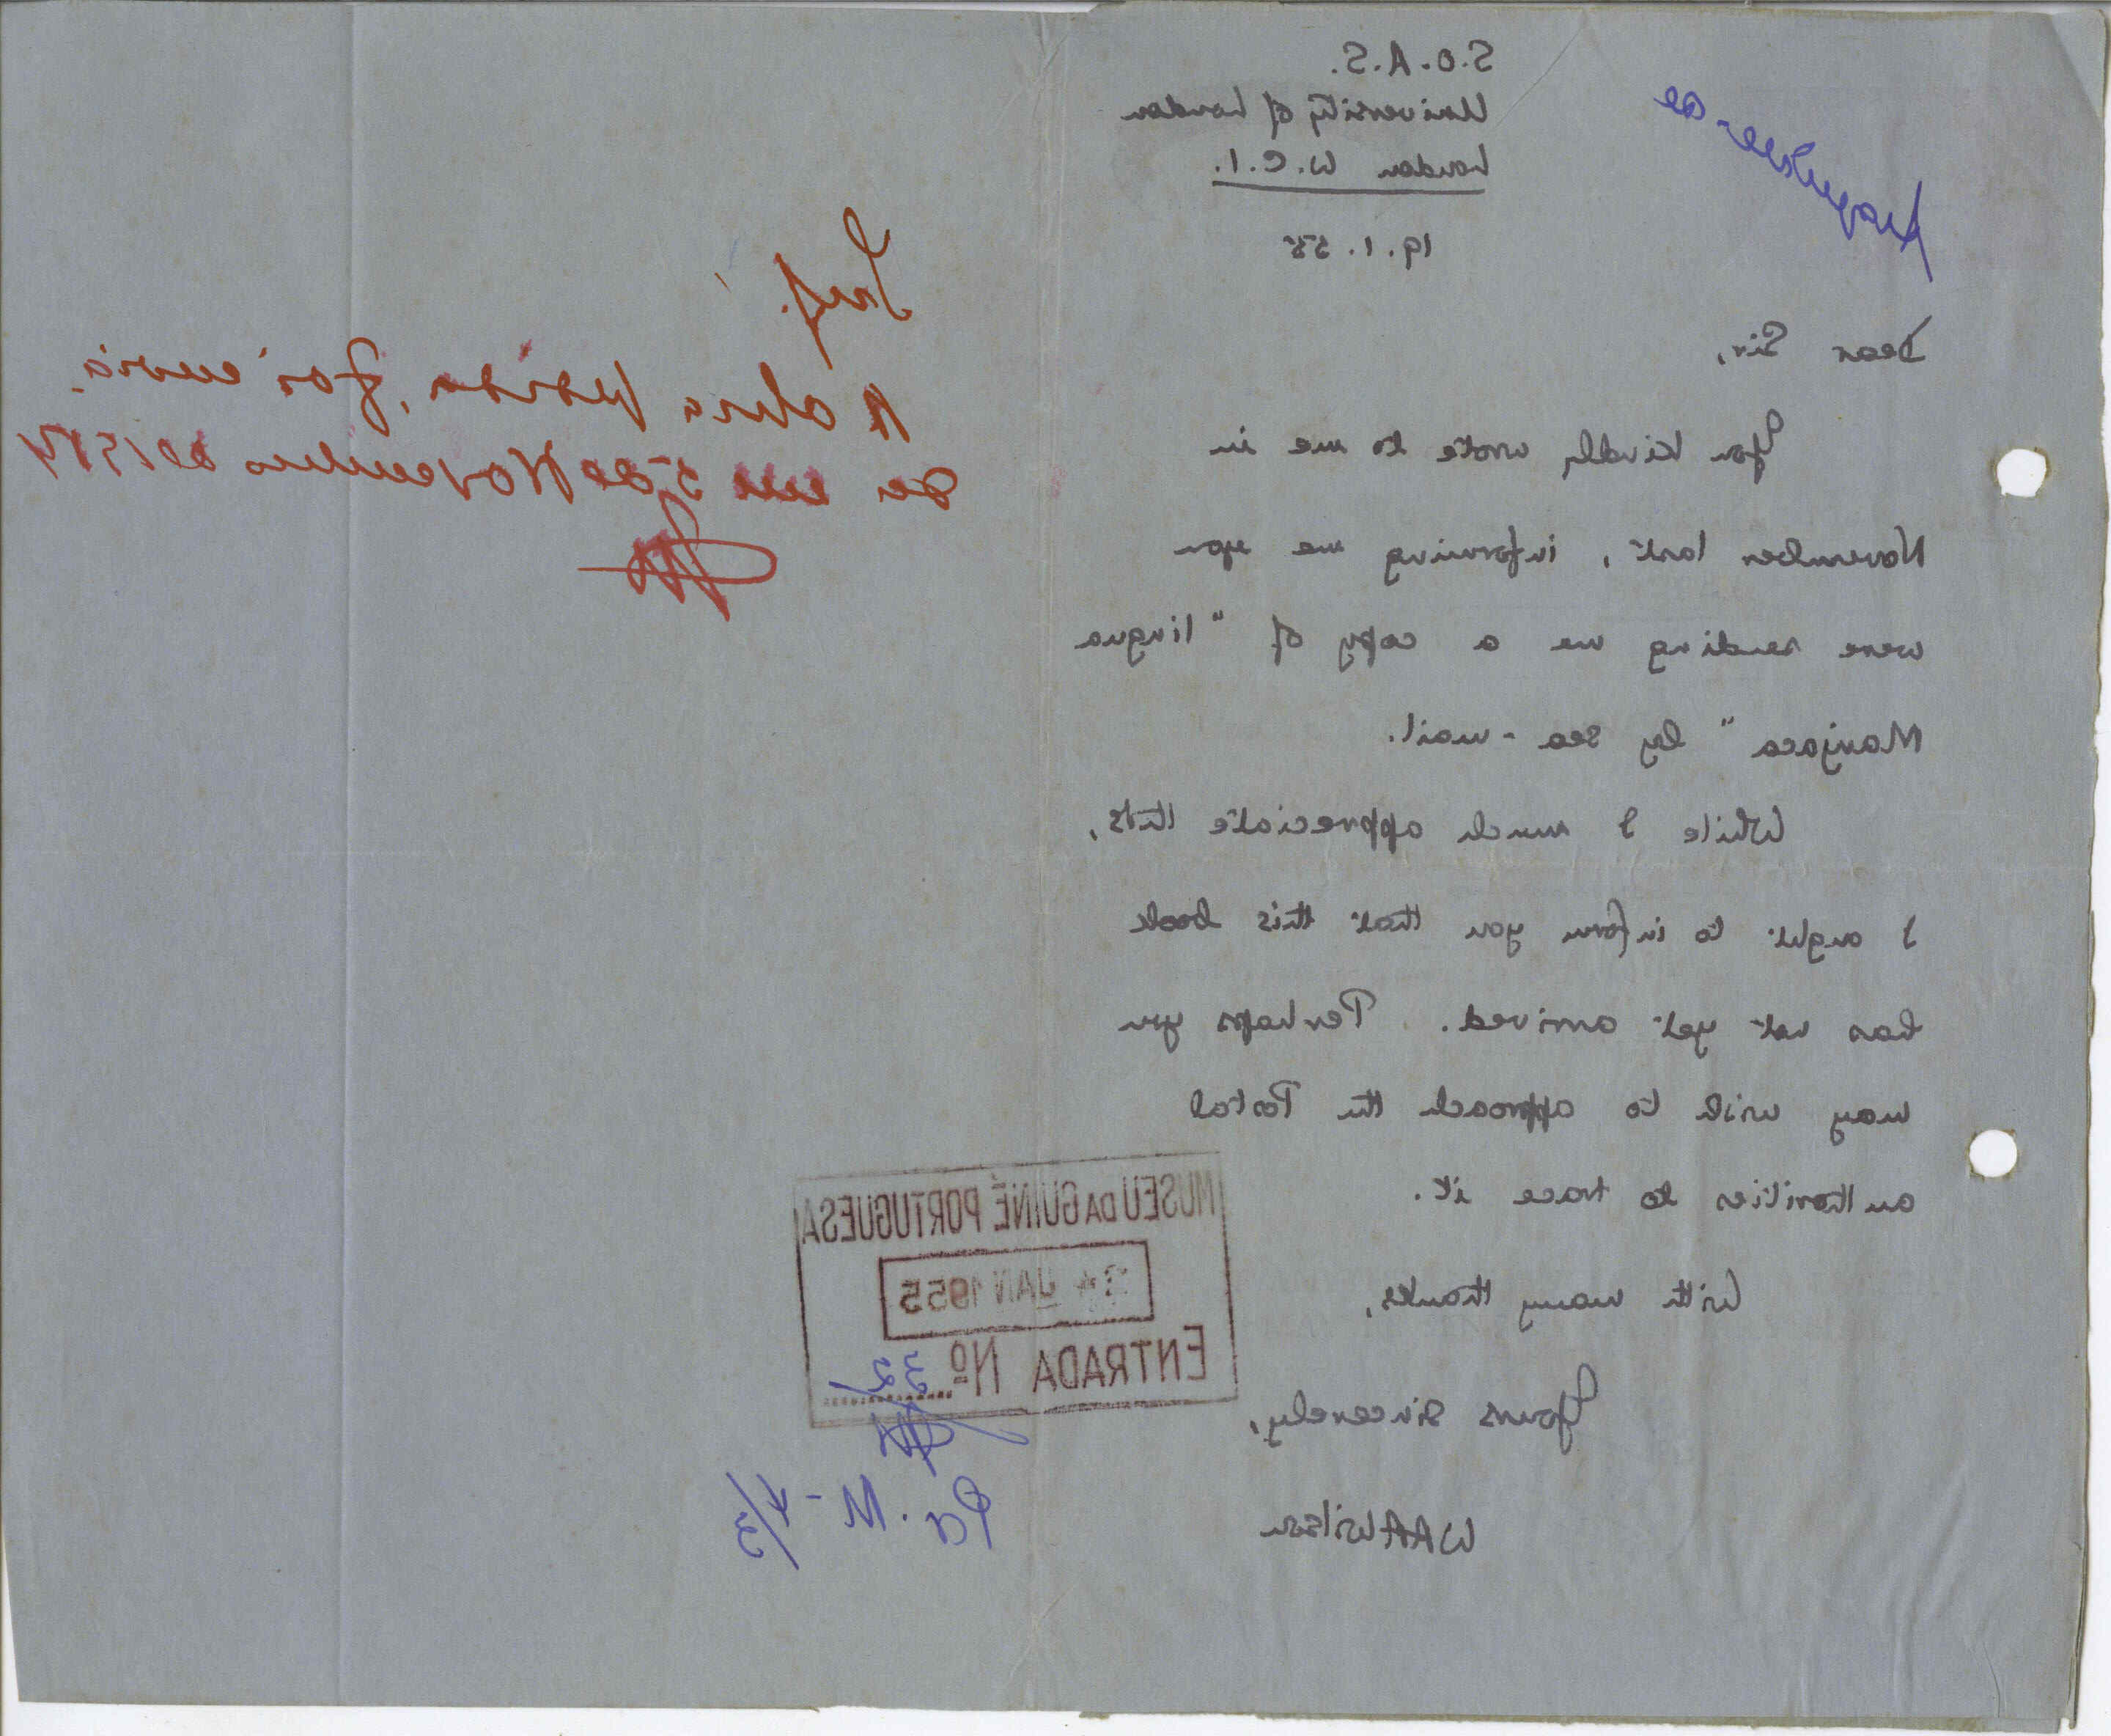 Arquive-se
S.O.A.S.
University of London
London W.C.1.
19.1.55
Dear Sir,
You kindly wrote to me in
November last, informing me you
were sending me a copy of "lingua
Manjaca" by sea-mail.
While I much appreciate this,
I ought to inform you that this book
has not yet arrived. Perhaps you
may wish to approach the Postal
authorities to trace it.
With many thanks,
Yours sincerely,
WAAWilson
Inf.
A obra pedida, foi envia-
da em 5 de Novembro de 1954
MUSEU DA GUINÉ PORTUGUESA
JAN 1955
ENTRADA Nº 32